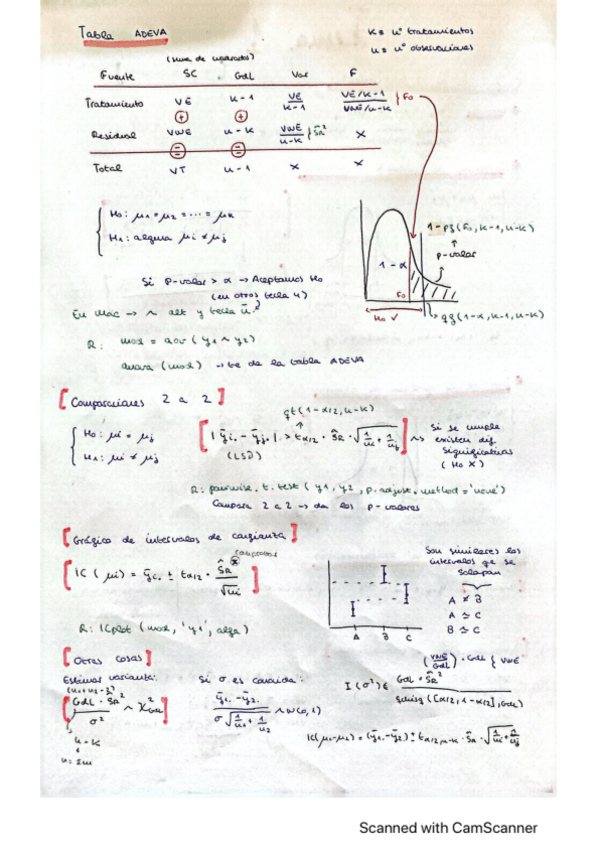 Tabla ADEVA
K ≡ nº tratamientos
n ≡ nº observaciones
(suma de cuadrados)
Fuente SC GdL Var F
Tratamiento VE K-1 VE/K-1 (VE/K-1)/(VNE/n-K) } F₀
⊕ ⊕
Residual VNE n-K VNE/n-K } ŝR² X
⊜ ⊜
Total VT n-1 X X
H₀: μ₁ = μ₂ = ... = μK
H₁: alguna μi ≠ μj
1-pf(F₀, K-1, n-K)
↑
p-valor
1-α
F₀
H₀ ✓
qf(1-α, K-1, n-K)
Si p-valor > α → Aceptamos H₀
(en otros tecla 4)
En mac → ~ alt y tecla ñ
R: mod = aov (y1 ~ y2)
anova (mod) → te da la tabla ADEVA
[Comparaciones 2 a 2]
qt(1-α/2, n-K)
H₀: μi = μj
H₁: μi ≠ μj
[|ȳi. - ȳj.| > tα/2 · ŝR · √(1/ni + 1/nj)] ~>
(LSD)
Si se cumple
existen dif.
significativas
(H₀ X)
R: pairwise.t.test (y1, y2, p.adjust.method = 'none')
Compara 2 a 2 → da los p-valores
[Gráfico de intervalos de confianza]
[IC(μi) = ȳi. ± tα/2 · ŝR/√ni]
Son similares los
intervalos que se
solapan
A ≠ B
A ≃ C
B ≃ C
A B C
R: ICplot (mod, 'y1', alfa)
[Otras cosas]
Estimar varianza:
[GdL · ŝR²/σ² ~ χ²GdL]
n-K
Si σ es conocida:
(ȳ1. - ȳ2.)/(σ√(1/n1 + 1/n2)) ~ N(0,1)
(VNE/GdL) · GdL { VNE
I(σ²) ∈ GdL · ŝR² / qchisq([α/2, 1-α/2], GdL)
IC(μ1-μ2) = (ȳ1. - ȳ2.) ± tα/2, n-K · ŝR · √(1/ni + 1/nj)
Scanned with CamScanner